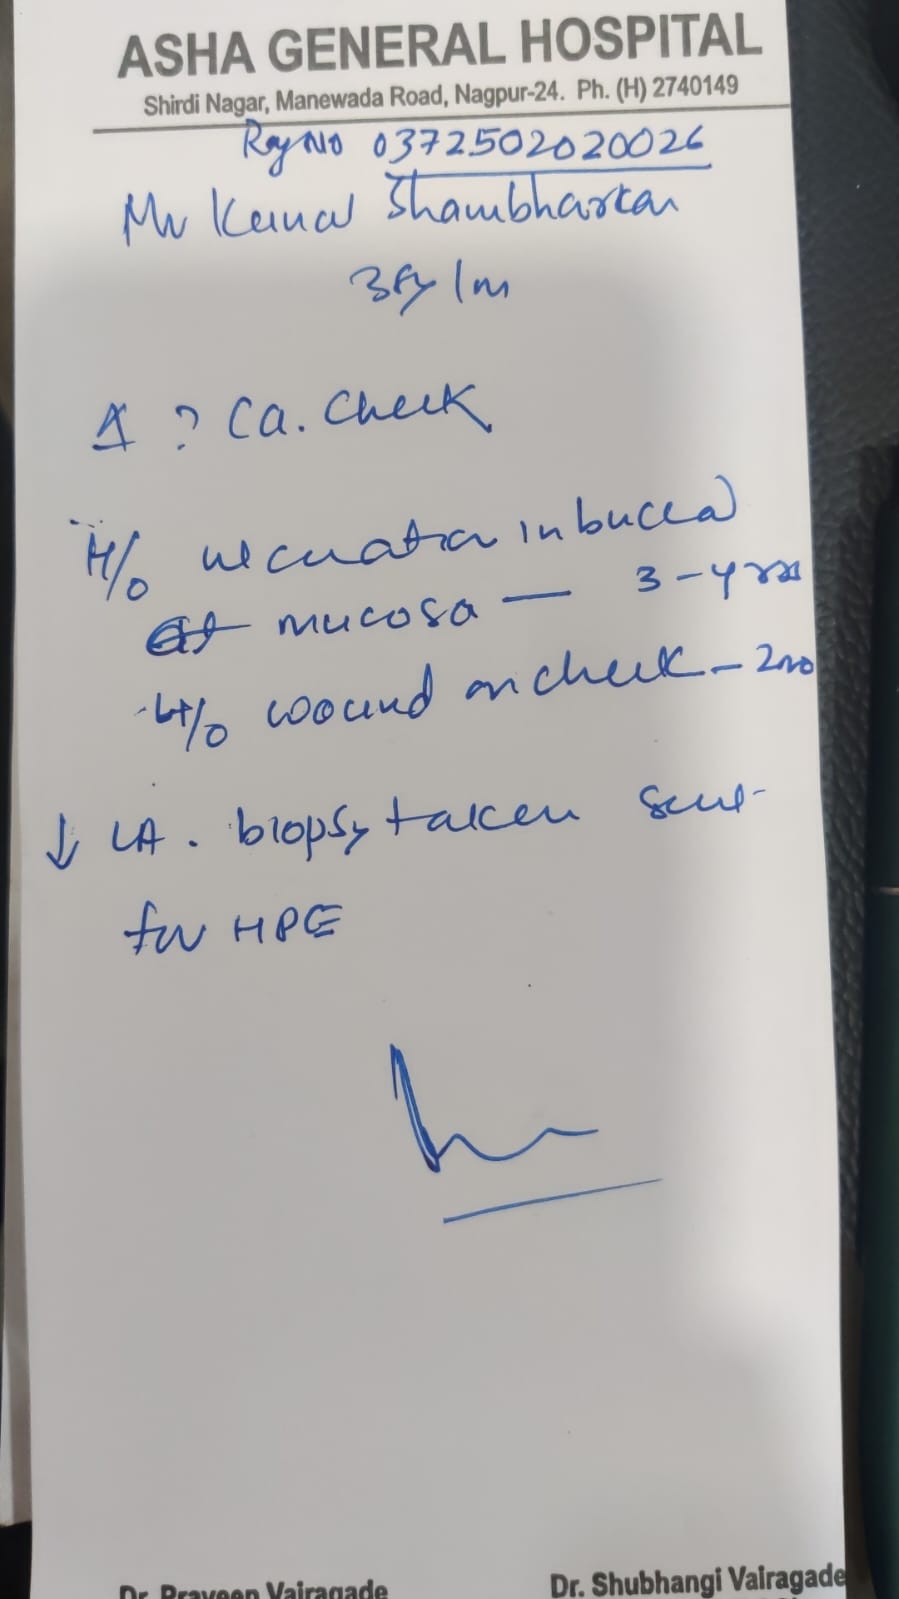 ASHA GENERAL HOSPITAL
Shirdi Nagar, Manewada Road, Nagpur-24. Ph. (H) 2740149
Reg No 0372502020026
Mr Shambharkar
/ m
? Ca. Cheek
H/o in buccal
mucosa — 3-4 yrs
H/o wound on cheek -
↓ LA. biopsy taken sent
for HPE
Dr. Praveen Vairagade
Dr. Shubhangi Vairagade